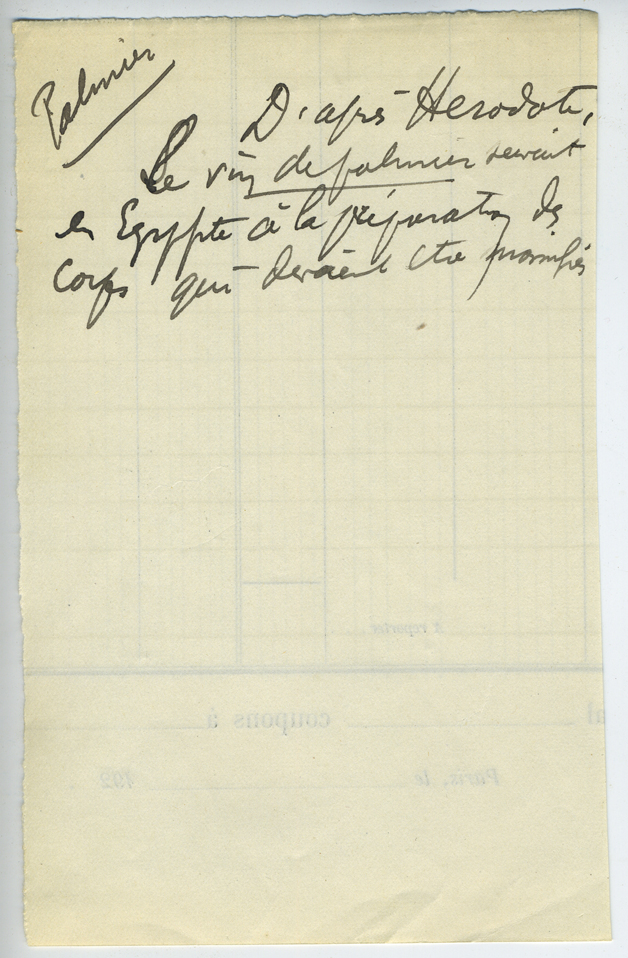 Palmier
D'après Herodote,
Le vin de palmier servait
en Egypte à la préparation des
corps qui devaient être momifiés
à reporter
al coupons à
Paris, le 192